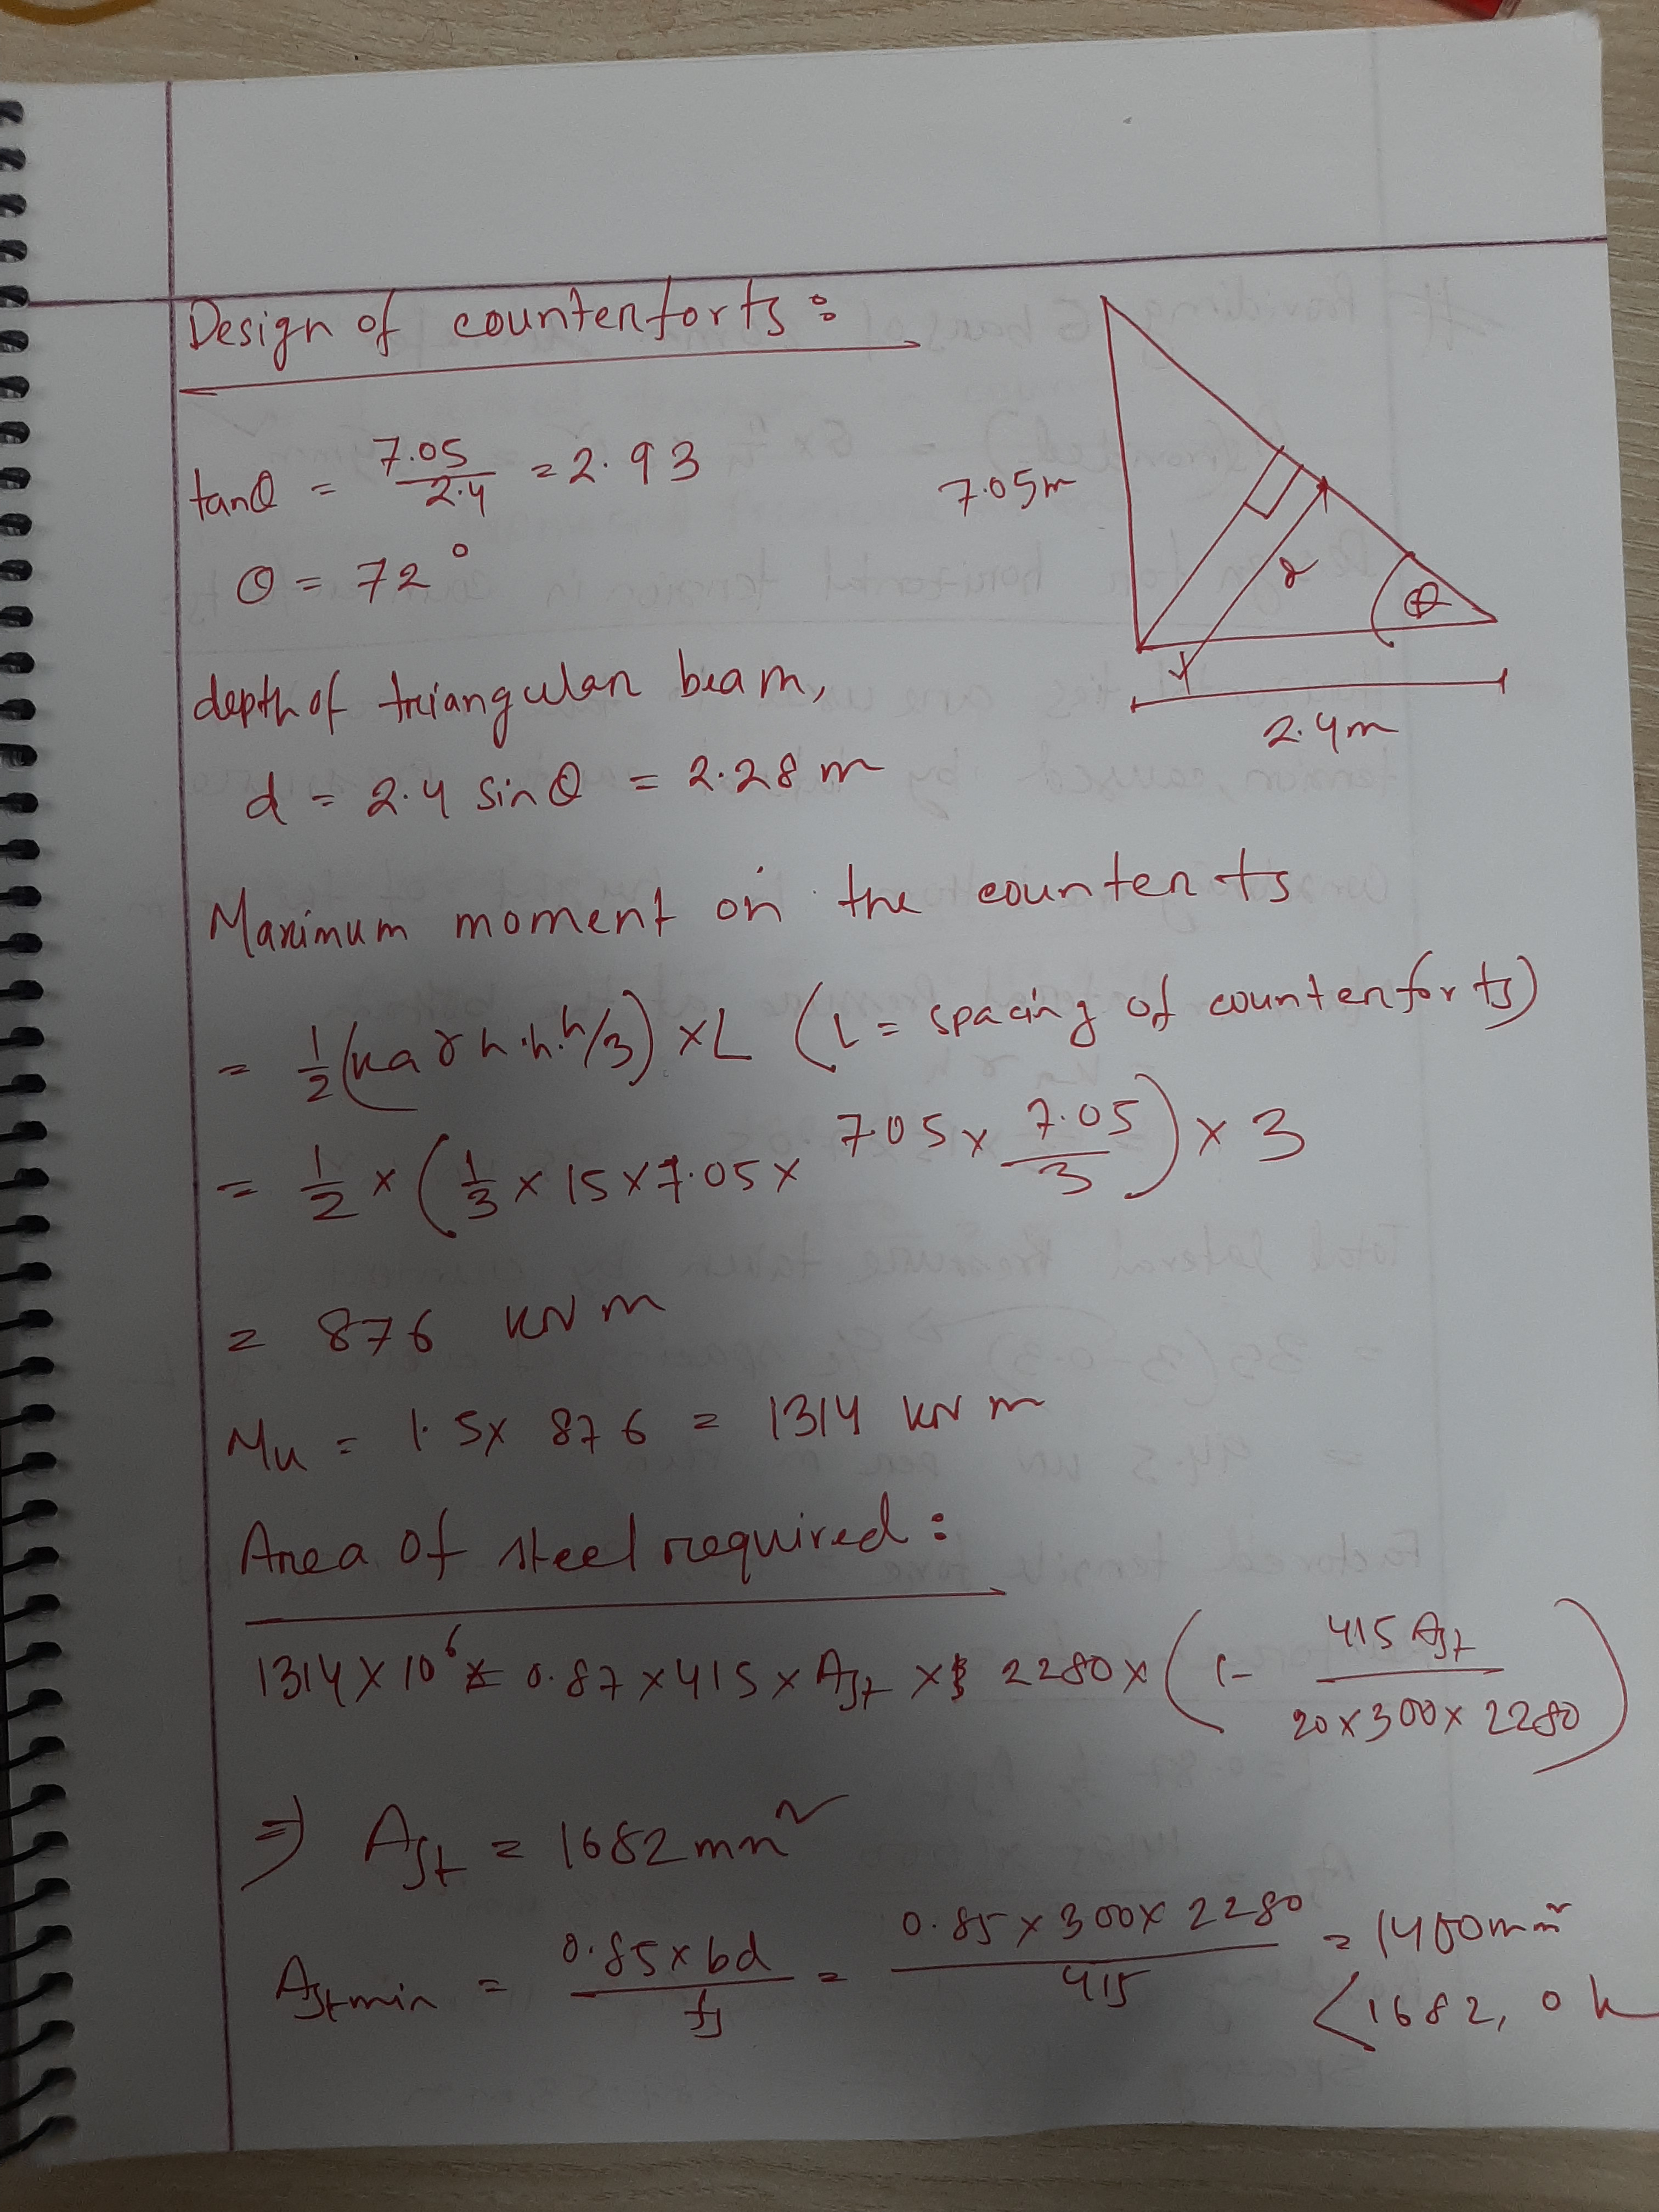 Design of counterforts :
tanθ = 7.05/2.4 = 2.93
7.05m
θ = 72°
θ
2.4m
depth of triangular beam,
d = 2.4 sinθ = 2.28 m
Maximum moment on the counterts
= 1/2 (ka γ h.h.h/3) × L (L = spacing of counterforts)
= 1/2 × (1/3 × 15 × 7.05 × 7.05 × 7.05/3) × 3
= 876 kN m
Mu = 1.5 × 876 = 1314 kN m
Area of steel required :
1314 × 10^6 = 0.87 × 415 × Ast × 2280 × (1 - 415 Ast/20×300×2280)
⇒ Ast = 1682 mm²
Astmin = 0.85 × bd/fy = 0.85 × 300 × 2280/415 = 1400 mm²
< 1682, ok